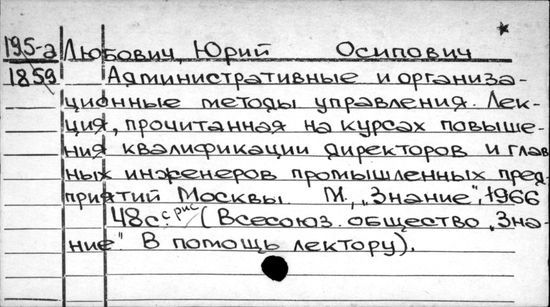 195-а Любович, Юрий Осипович
1859 Административные и организа-
ционные методы управления. Лек-
ция, прочитанная на курсах повыше-
ния квалификации директоров и глав
ных инженеров промышленных пред-
приятий Москвы. М., „Знание", 1966
48с. с рис. (Всесоюз. общество „Зна-
ние" В помощь лектору).